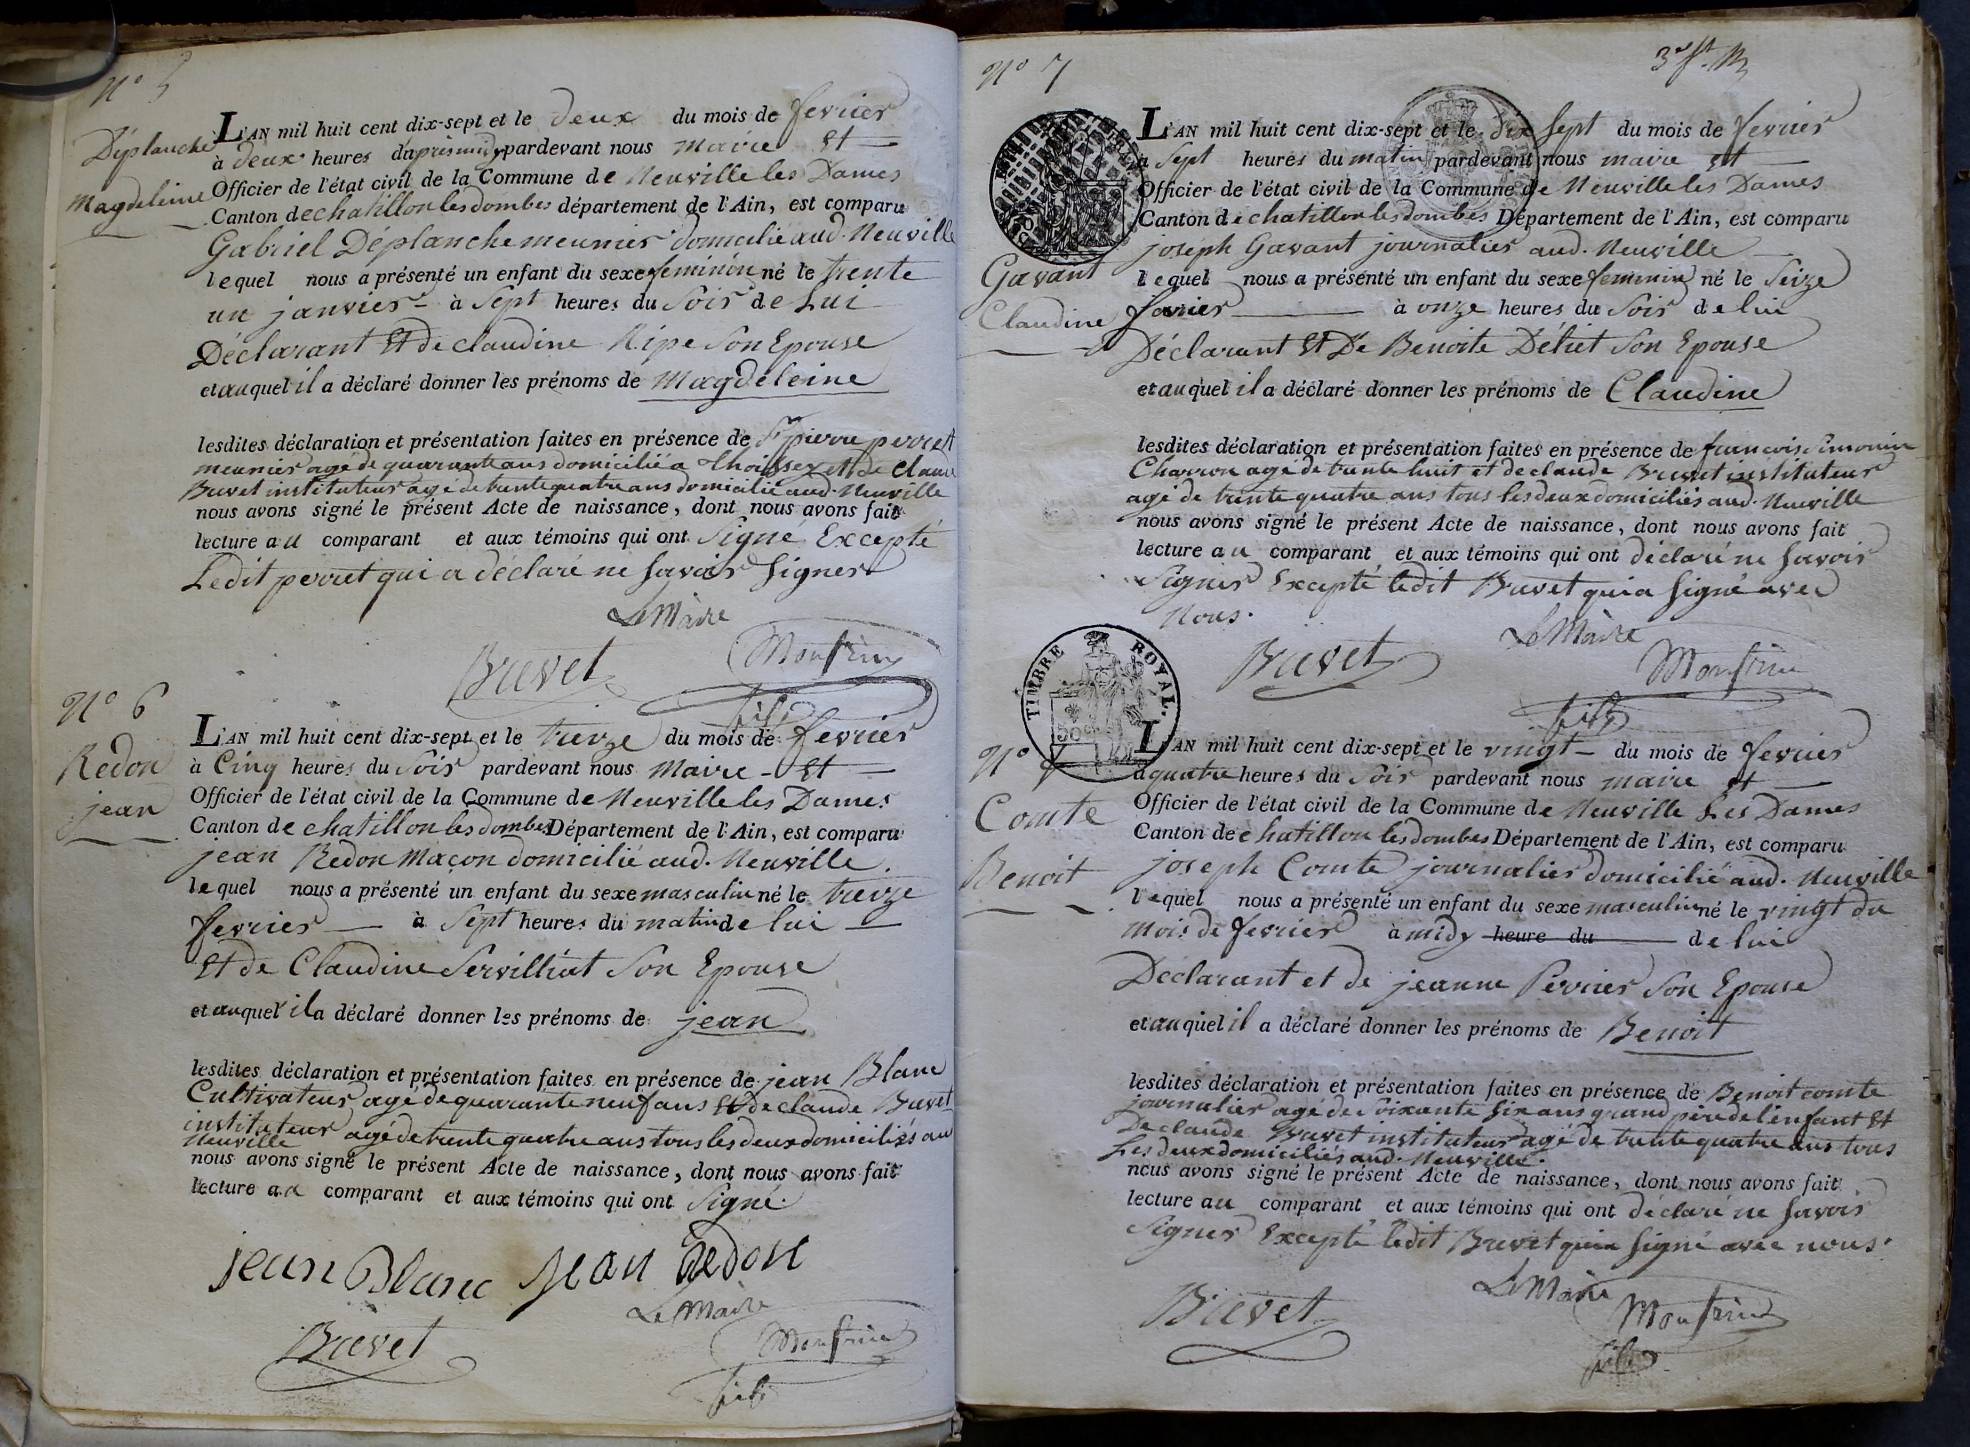 N° 5
Déplanche
Magdeleine
L'AN mil huit cent dix-sept et le deux du mois de fevrier
à deux heures d'apresmidy pardevant nous maire Et
Officier de l'état civil de la Commune de Neuville les Dames
Canton de chatillon les dombes département de l'Ain, est comparu
Gabriel Déplanche meunier domicilié aud. Neuville
lequel nous a présenté un enfant du sexe feminin né le trente
un janvier à Sept heures du Soir de Lui
Déclarant Et de claudine Ripe Son Epouse
et auquel il a déclaré donner les prénoms de Magdeleine
lesdites déclaration et présentation faites en présence de Sr. pierre perret
meunier agé de quarante ans domicilié a thoissey et de claude
Buvet instituteur agé de trente quatre ans domicilié aud. Neuville
nous avons signé le présent Acte de naissance, dont nous avons fait
lecture au comparant et aux témoins qui ont Signé Excepté
Ledit perret qui a déclaré ne Savoir Signer
Le Maire
Buvet
fils
N° 6
Redon
jean
L'AN mil huit cent dix-sept et le treize du mois de fevrier
à Cinq heures du Soir pardevant nous Maire Et
Officier de l'état civil de la Commune de Neuville les Dames
Canton de chatillon les dombes Département de l'Ain, est comparu
jean Redon Maçon domicilié aud. Neuville
lequel nous a présenté un enfant du sexe masculin né le treize
fevrier à Sept heures du matin de lui
Et de Claudine Servilliat Son Epouse
et auquel il a déclaré donner les prénoms de jean
lesdites déclaration et présentation faites en présence de jean Blanc
Cultivateur agé de quarante neuf ans Et De claude Buvet
instituteur agé de trente quatre ans tous les deux domiciliés au
Neuville
nous avons signé le présent Acte de naissance, dont nous avons fait
lecture au comparant et aux témoins qui ont Signé.
jean Blanc Jean Redon
Le Maire
Buvet
fils
N° 7
Gavant
Claudine
L'AN mil huit cent dix-sept et le dix Sept du mois de fevrier
à Sept heures du matin pardevant nous maire Et
Officier de l'état civil de la Commune de Neuville les Dames
Canton de chatillon les dombes Département de l'Ain, est comparu
joseph Gavant journalier aud. Neuville
lequel nous a présenté un enfant du sexe feminin né le Seize
fevrier à onze heures du Soir de lui
Déclarant Et De Benoite Déliet Son Epouse
et auquel il a déclaré donner les prénoms de Claudine
lesdites déclaration et présentation faites en présence de francois Simonin
Charron agé de trente huit et de claude Buvet instituteur
agé de trente quatre ans tous les deux domiciliés aud. Neuville
nous avons signé le présent Acte de naissance, dont nous avons fait
lecture au comparant et aux témoins qui ont déclaré ne Savoir
Signer Excepté ledit Buvet qui a Signé avec
Nous.
Le Maire
Buvet
fils
TIMBRE ROYAL.
50
N°
Comte
Benoit
L'AN mil huit cent dix-sept et le vingt du mois de fevrier
à quatre heures du Soir pardevant nous maire et
Officier de l'état civil de la Commune de Neuville Les Dames
Canton de chatillon les dombes Département de l'Ain, est comparu
joseph Comte journalier domicilié aud. Neuville
lequel nous a présenté un enfant du sexe masculin né le vingt du
mois de fevrier à midy heure du de lui
Déclarant et de jeanne Perrier Son Epouse
et auquel il a déclaré donner les prénoms de Benoit
lesdites déclaration et présentation faites en présence de Benoit comte
journalier agé de Soixante Six ans grand père de l'enfant Et
De claude Buvet instituteur agé de trente quatre ans tous
Les deux domiciliés aud. Neuville.
nous avons signé le présent Acte de naissance, dont nous avons fait
lecture au comparant et aux témoins qui ont déclaré ne Savoir
Signer Excepté ledit Buvet qui a Signé avec nous.
Le Maire
Buvet
fils